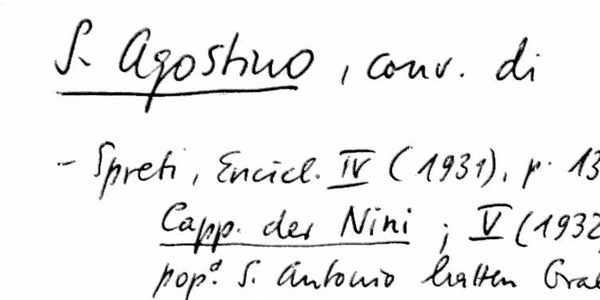 S. Agostino, conv. di
- Spreti, Encicl. IV (1931), p. 13
Capp. der Nini ; V (1932
pop.º S. Antonio hatten